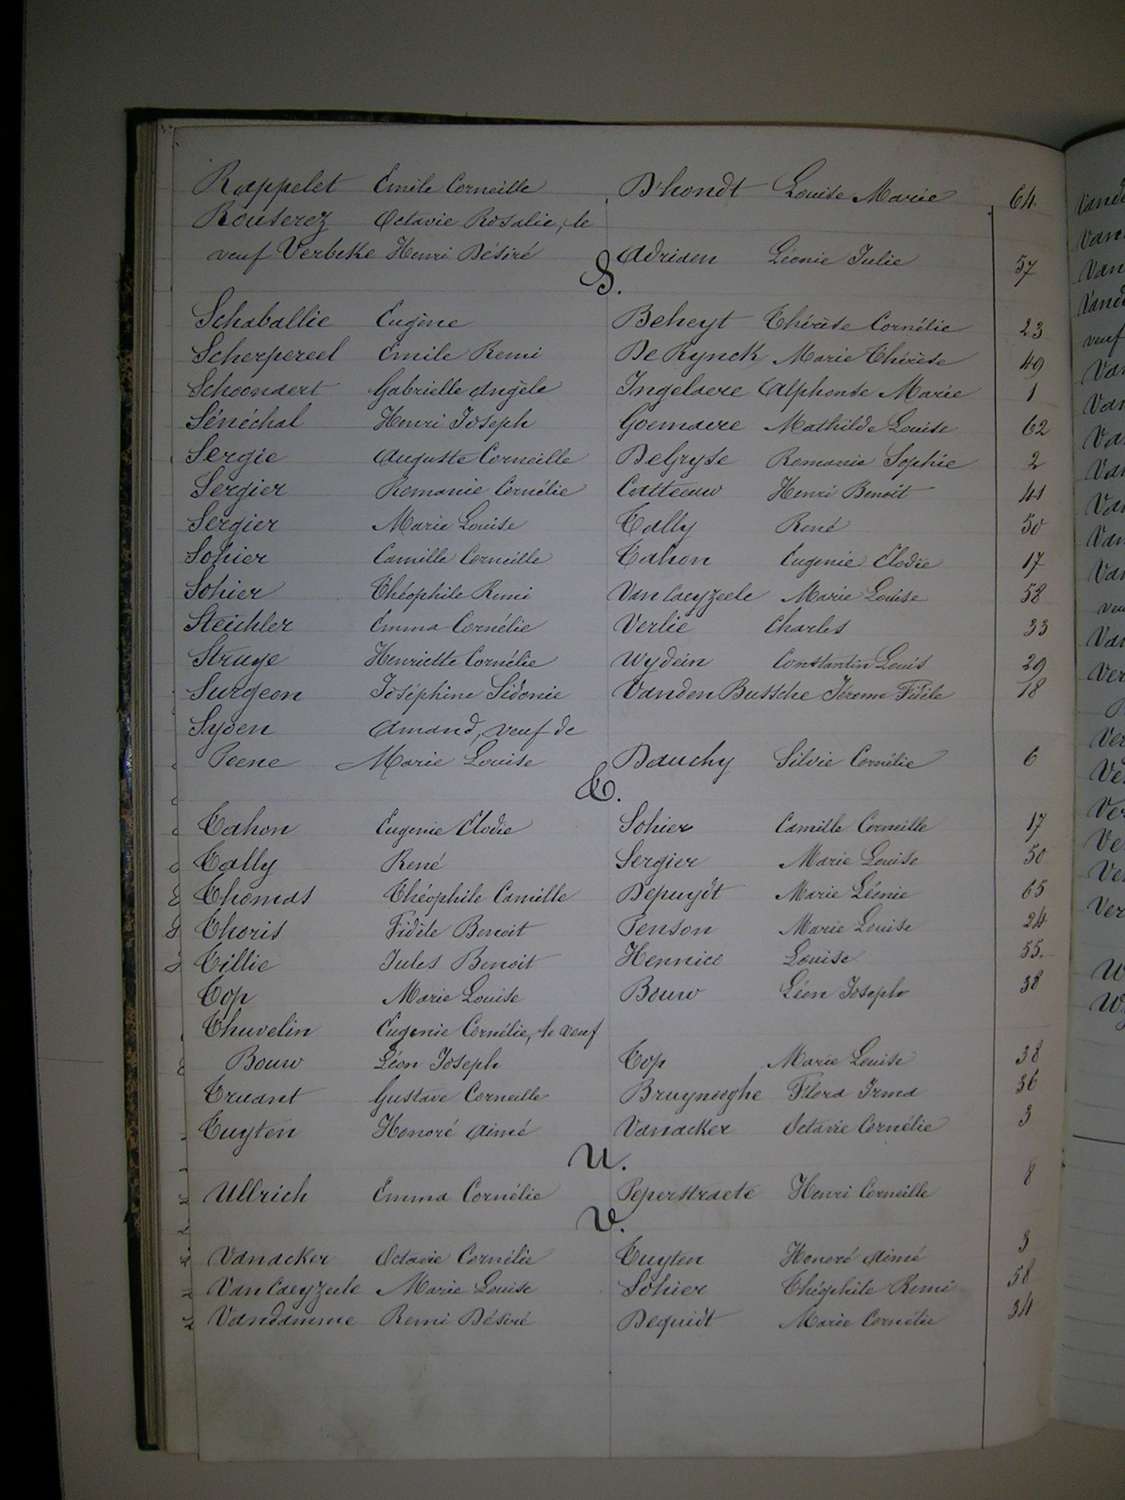 Rappelet Emile Corneille D'hondt Louise Marie 64.
Routerez Octavie Rosalie, le
veuf Verbeke Henri Désiré Adriaen Léonie Julie 57
S.
Schaballie Eugène Beheyt Thérèse Cornélie 23
Scherpereel Emile Remi De Rynck Marie Thérèse 49
Schoonaert Gabrielle Angèle Ingelaere Alphonse Marie 1
Sénéchal Henri Joseph Goemaere Mathilde Louise 62
Sergie Auguste Corneille DeGryse Romanie Sophie 2
Sergier Romanie Cornélie Catteauw Henri Benoit 41
Sergier Marie Louise Tally René 50
Sohier Camille Corneille Tahon Eugenie Elodie 17
Sohier Théophile Remi Van Caeyzeele Marie Louise 58
Steühler Emma Cornélie Verlie Charles 33
Struye Henriette Cornélie Wydein Constantin Louis 29
Surgeon Joséphine Sidonie VandenBussche Jérome Fidèle 18
Syoen Amand, veuf de
Poene Marie Louise Dauchy Silvie Cornélie 6
T.
Tahon Eugenie Elodie Sohier Camille Corneille 17
Tally René Sergier Marie Louise 50
Thomas Théophile Camille Depuydt Marie Léonie 65
Thoris Fidèle Benoit Fenson Marie Louise 24
Tillie Jules Benoit Hennice Louise 55.
Top Marie Louise Bouw Léon Joseph 38
Thuvelin Eugenie Cornélie, le veuf
Bouw Léon Joseph Top Marie Louise 38
Truant Gustave Corneille Bruyneeghe Flora Irma 36
Tuyten Honoré Aimé Vanacker Octavie Cornélie 3
U.
Ullrich Emma Cornélie Peperstraete Henri Corneille 8
V.
Vanacker Octavie Cornélie Tuyten Honoré Aimé 3
Van Caeyzeele Marie Louise Sohier Théophile Remi 58
Vandamme Remi Désiré Dequidt Marie Cornélie 34